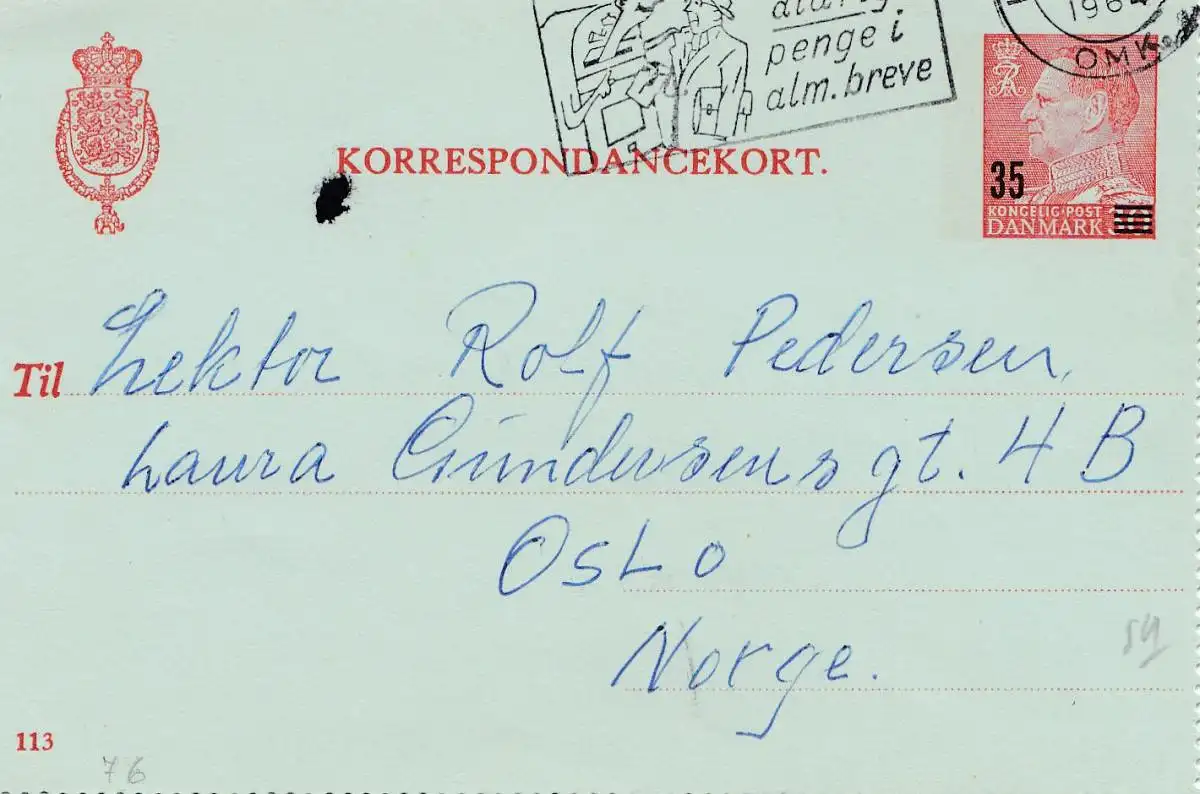 penge i
alm. breve
196
OMK
KORRESPONDANCEKORT.
35
KONGELIG POST
DANMARK
Til Lektor Rolf Pedersen,
Laura Gundersensgt. 4 B
Oslo
Norge.
113
76